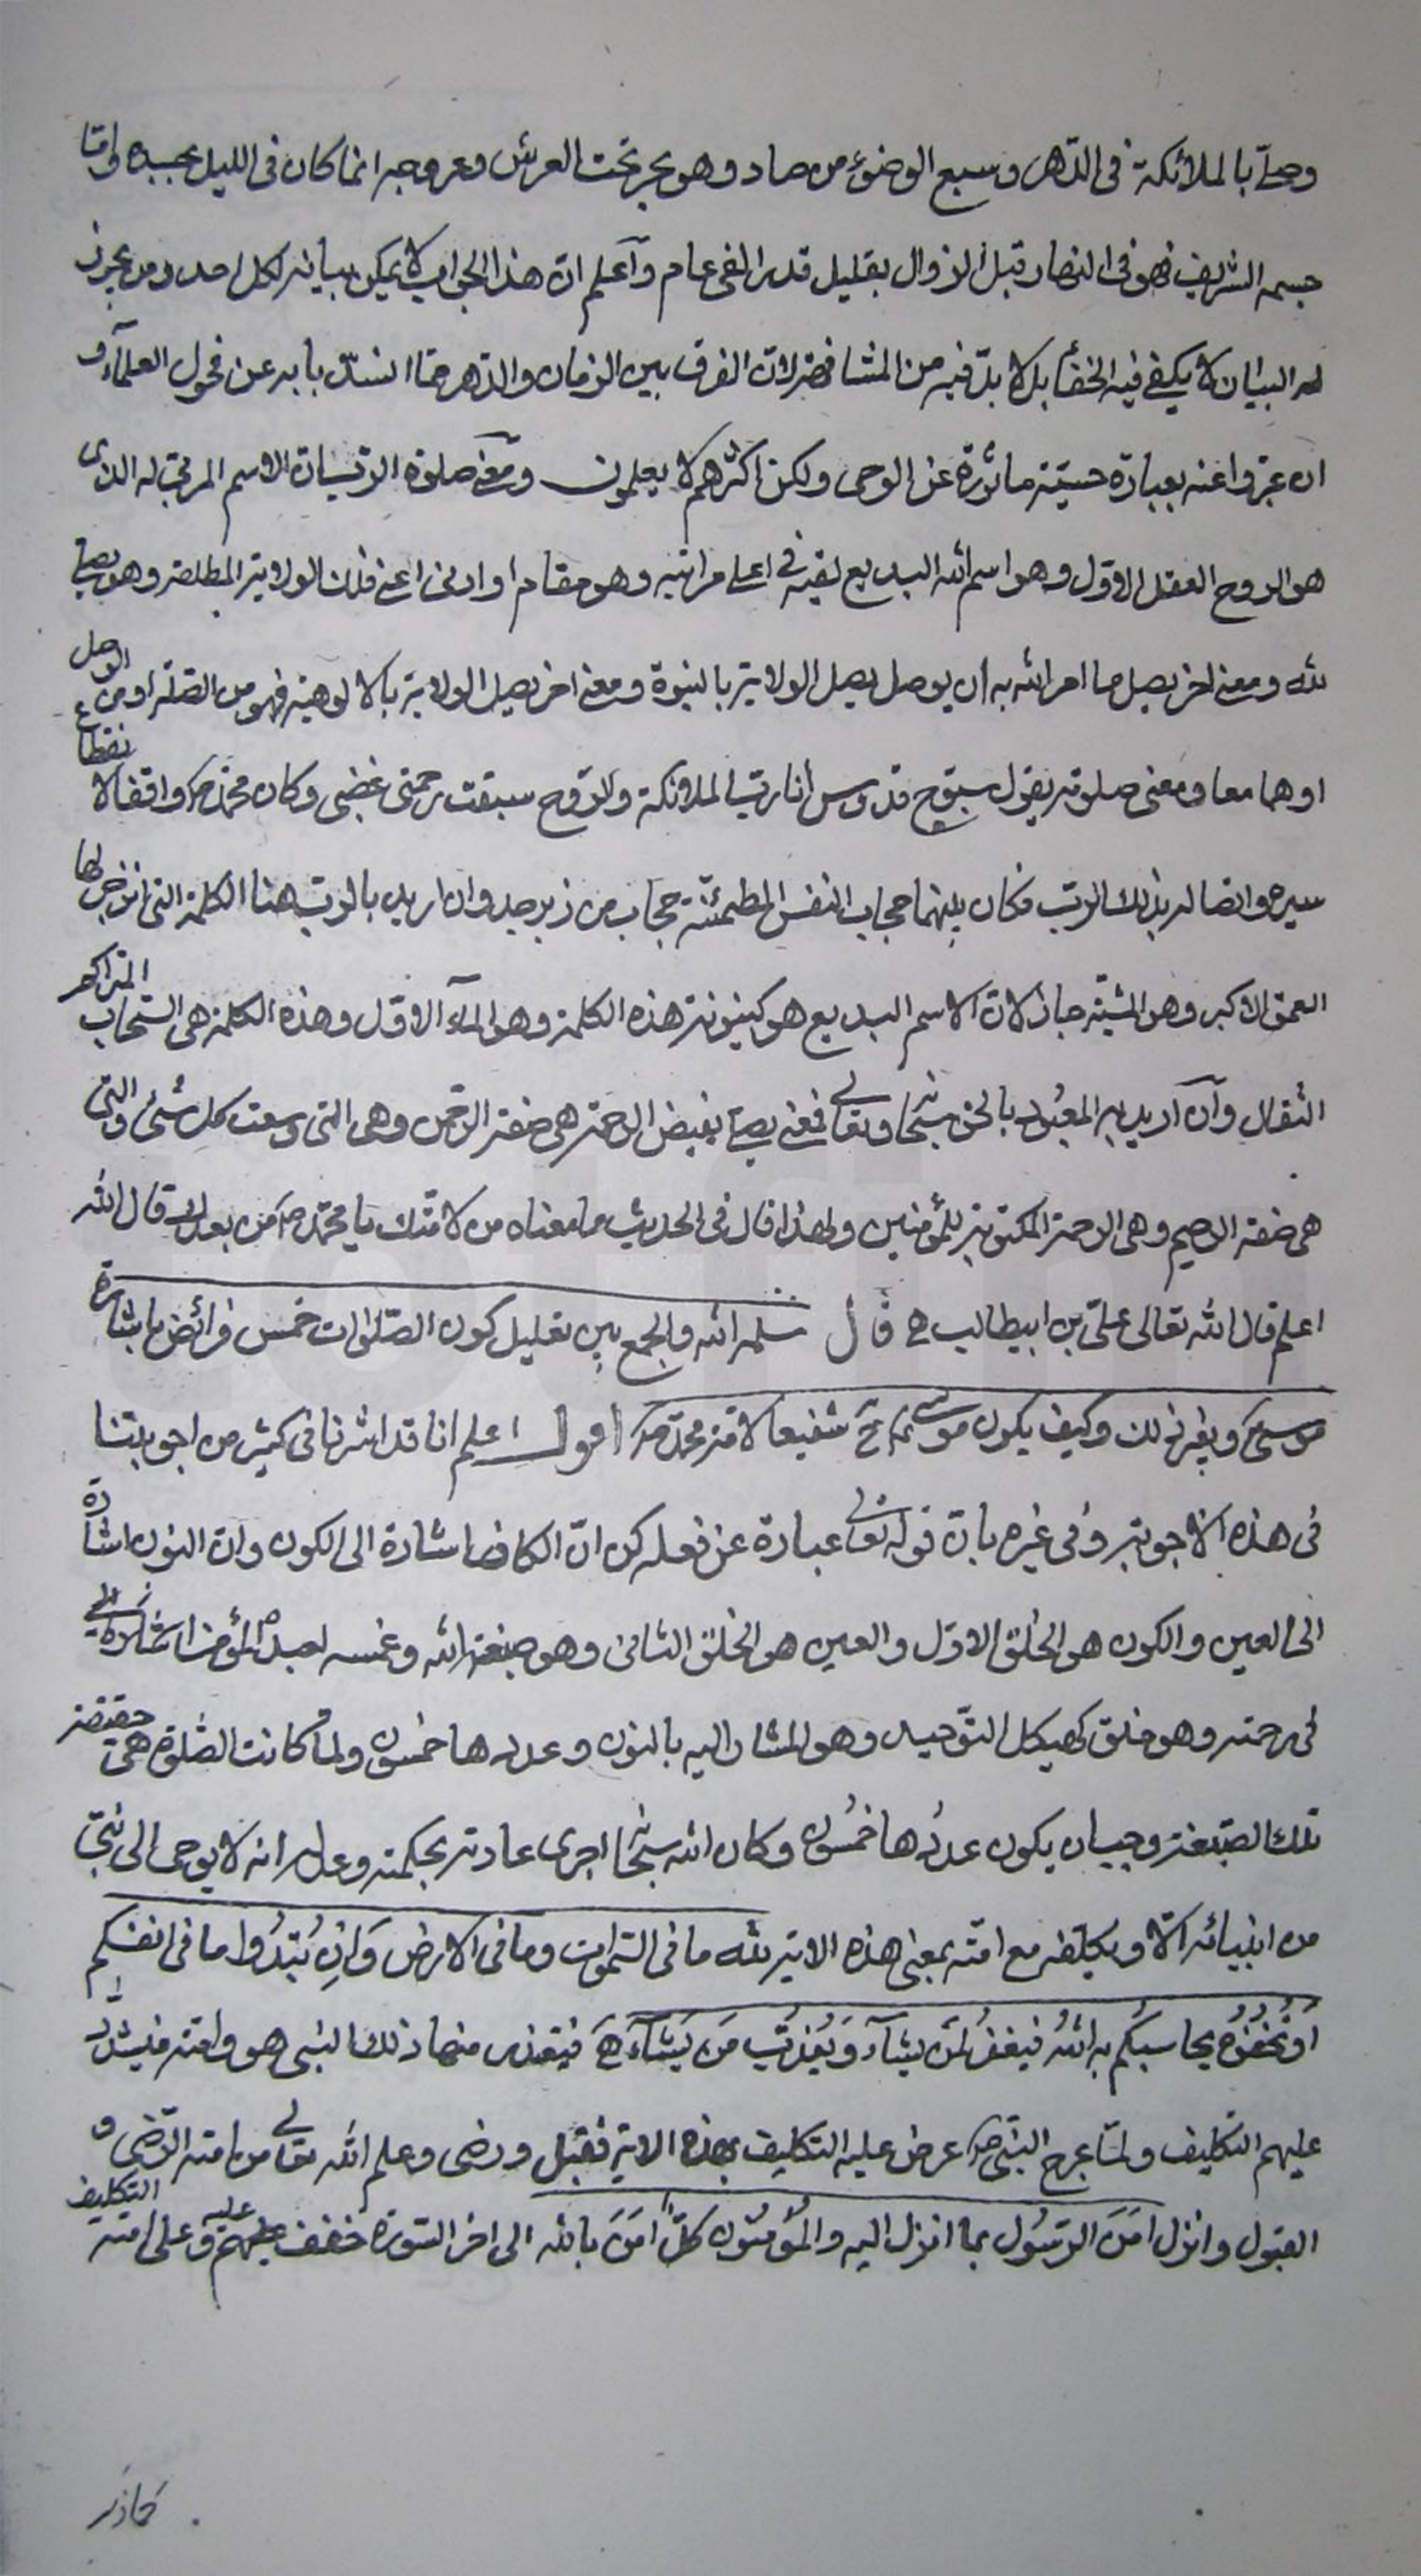 وصلّى بالملائكة فى الدّهر و سبع الوضوء من صاد وهو بحر تحت العرش وعروجه انما كان فى الليل بجسده وامّا
جسمه الشريف فهو فى النهار قبل الزوال بقليل قدر الفى عام وآعلم انّ هذا الجواب لا يمكن بيانه لكل احد ومن يجوز
له البيان لا يكفى فيه الخط بل لا بدّ فيه من المشافهة لانّ الفرق بين الزمان والدّهر ممّا انسدّ بابه عن فحول العلمآء و
ان عبّروا عنه بعبارة حسنة ماثورة عن الوحى ولكن اكثرهم لا يعلمون ومعنى صلوة الربّ انّ الاسم المربّى له الذى
هو الروح العقل الاوّل وهو اسم الله البديع لقيه فى اعلى مراتبه وهو مقام او ادنى اعنى فلك الولاية المطلقة وهو يصلّى
لله ومعنى اخر يصل ما امر الله به ان يوصل يصل الولاية بالنبوة ومعنى اخر يصل الولاية بالالوهية فهو من الصّلة او من الوصل
او هما معا ومعنى صلوته يقول سبّوح قدّوس انا ربّ الملائكة والرّوح سبقت رحمتى غضبى وكان محمّد ص واقفا لانقطاع
سيره واتصاله بذلك الربّ فكان بينهما حجاب النفس المطمئنّة حجاب من زبرجد وان اريد بالربّ هنا الكلمة التى انزجر لها
العمق الاكبر وهو المشيّة جاز لانّ الاسم البديع هو كينونة هذه الكلمة وهو المآء الاوّل وهذه الكلمة هى السّحاب المتراكم
الثقال وآن آريد به المعبود بالحق سبحانه وتعالى فمعنى يصلّى يفيض الرحمة هى صفة الرحمن وهى التى وسعت كل شئ والتى
هى صفة الرحيم وهى الرحمة المكتوبة للمؤمنين ولهذا قال فى الحديث ما معناه من لامّتك يا محمّد ص من بعدك قال الله
اعلم قال الله تعالى علىّ بن ابيطالب ع قال سلمه الله والجمع بين تعليل كون الصّلوات خمس فرائض باشارة
موسى ع وبغير ذلك وكيف يكون موسى ع ح شفيعا لامّة محمّد ص اقول اعلم انا قد اشرنا فى كثير من اجوبتنا
فى هذه الاجوبة وفى غيره بانّ قوله تعالى عبارة عن فعله كن انّ الكاف اشارة الى الكون وان النون اشارة
الى العين والكون هو الخلق الاوّل والعين هو الخلق الثانى وهو صبغة الله وغمسه لعبده المؤمن اشارة الى
فى رحمته وهو خلق كهيكل التّوحيد وهو المشار اليه بالنون وعددها خمسون ولمّا كانت الصّلوة هى حقيقة
تلك الصّبغة وجب ان يكون عددُها خمسُون وكان الله سبحانه اجرى عادته بحكمته وعدله انه لا يوحى الى نبىّ
من انبيائه الّا ويكلّفه مع امّته بمعنى هذه الاية لله ما فى السّموات وما فى الارض وَاِن تُبْدُوا ما فى انفسكم
اَوْ تُخْفُوهُ يحاسبْكُم به اللهُ فيغفرُ لمَن يشآء وَيُعَذّبُ مَن يَشآء فيتعذر منها ذلك النبى هو وامّته فيشدّد
عليهم التكليف ولمّا عرج النبىّ ص عرض عليه التكليف بهذه الاية فقبل ورضى وعلم الله تعالى من امته الرّضى و
القبول وانزل امَنَ الرّسُول بما انزل اليه والمُؤمنُون كلٌّ امَنَ بالله الى اخر السّورة خفف عليه وعلى امّته التكليف
كما ذكر